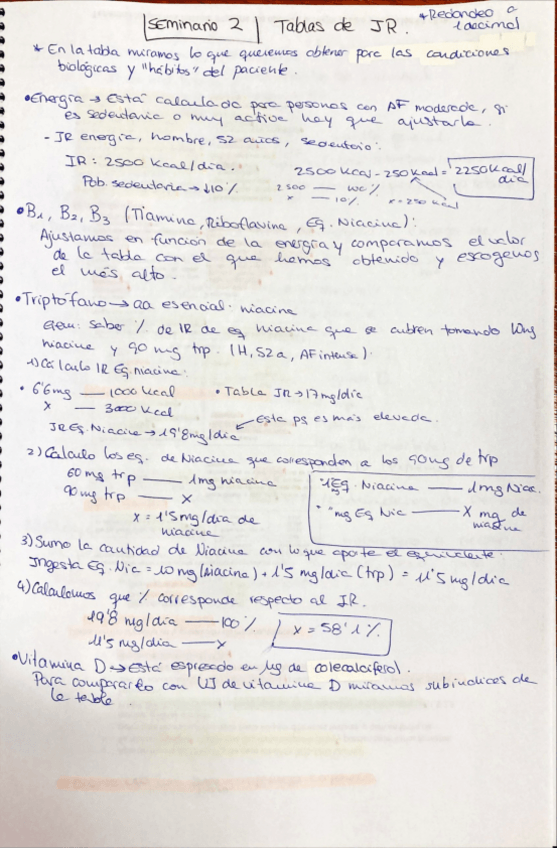 Seminario 2 | Tablas de IR. * Redondeo a 1 decimal
* En la tabla miramos lo que queremos obtener para las condiciones
biológicas y "hábitos" del paciente.
• Energía → Está calculada para personas con AF moderada, si
es sedentaria o muy activa hay que ajustarla.
- IR energía, hombre, 52 años, sedentario:
IR: 2500 Kcal/día.
Pob. sedentaria → ↓10%
2500 Kcal - 250 Kcal = 2250 Kcal/día
2500 — 100%
x — 10% x = 250 Kcal
• B1, B2, B3 (Tiamina, Riboflavina, Eq. Niacina):
Ajustamos en función de la energía y comparamos el valor
de la tabla con el que hemos obtenido y escogemos
el más alto.
• Triptófano → aa esencial. niacina
Ejem: saber % de IR de eq niacina que se cubren tomando 10mg
niacina y 90 mg trp. (H, 52a, AF intensa).
1) Cálculo IR Eq. niacina:
• 6'6mg — 1000 Kcal • Tabla IR → 17mg/día
x — 3000 Kcal
IR Eq. Niacina → 19'8mg/día ← Esta pq es más elevada.
2) Calculo los eq. de Niacina que corresponden a los 90mg de trp
60 mg trp — 1mg niacina
90mg trp — x
x = 1'5mg/día de
niacina
1Eq. Niacina — 1mg Niac.
" mg Eq Nic — x mg de
niacina
3) Sumo la cantidad de Niacina con lo que aporte el equivalente.
Ingesta Eq. Nic = 10 mg (Niacina) + 1'5 mg/día (trp) = 11'5 mg/día
4) Calculamos que % corresponde respecto al IR.
19'8 mg/día — 100%
11'5 mg/día — x
x = 58'1%
• Vitamina D → Está expresado en µg de colecalciferol.
Para compararlo con UI de vitamina D miramos subíndices de
la tabla